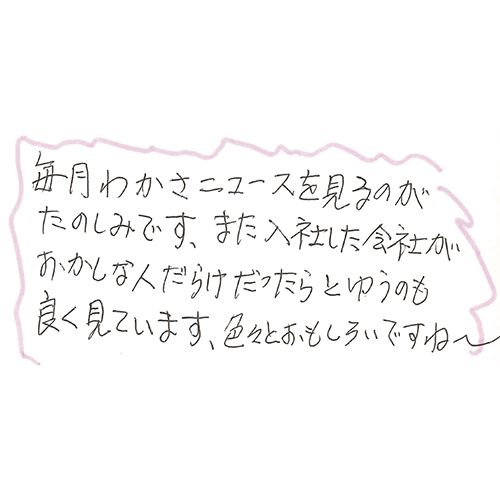 毎月わかさニュースを見るのが
たのしみです、また入社した会社が
おかしな人だらけだったらとゆうのも
良く見ています、色々とおもしろいですね〜